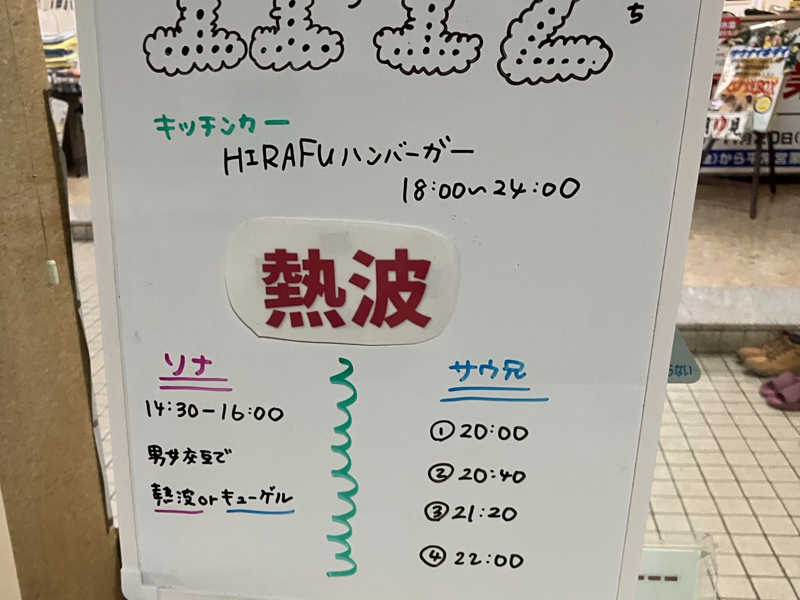 ち
キッチンカー
HIRAFUハンバーガー
18:00〜24:00
熱波
ソナ
14:30-16:00
男女交互で
熱波orキューゲル
サウ兄
①20:00
②20:40
③21:20
④22:00
らない